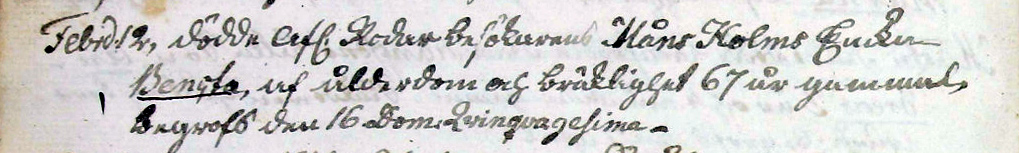 Febr: 12, dödde Afl. Rodarbesökarens Måns Holms Encka
Bengta, af ålderdom och bräklighet 67 år gammal,
begrofs den 16 Dom: Qvinqvagesima.